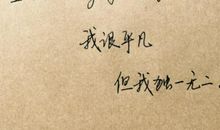 我很平凡
但我独一无二